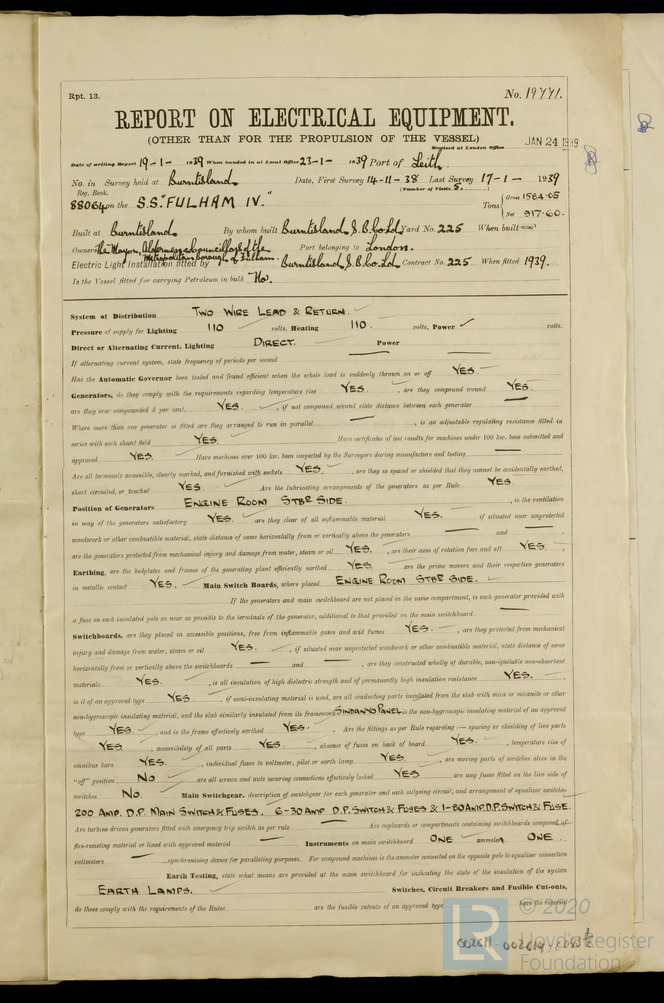 Rpt. 13.
No. 19771.
REPORT ON ELECTRICAL EQUIPMENT.
(OTHER THAN FOR THE PROPULSION OF THE VESSEL)
JAN 24 1939
Received at London Office
Date of writing Report 19-1- 1939 When handed in at Local Office 23-1- 1939 Port of Leith.
No. in Survey held at Burntisland Date, First Survey 14-11-38 Last Survey 17-1- 1939
Reg. Book. (Number of Visits 5.)
88064 on the S.S. "FULHAM IV." Tons Gross 1584.05
Net 917.60.
Built at Burntisland By whom built Burntisland S.B. Co Ld Yard No. 225 When built
Owners The Mayor, Aldermen & Councillors of the Metropolitan borough of Fulham. Port belonging to London.
Electric Light Installation fitted by Burntisland S.B. Co. Ld Contract No. 225 When fitted 1939.
Is the Vessel fitted for carrying Petroleum in bulk No.
System of Distribution TWO WIRE LEAD & RETURN.
Pressure of supply for Lighting 110 volts, Heating 110. volts, Power ✓ volts.
Direct or Alternating Current, Lighting DIRECT. Power —
If alternating current system, state frequency of periods per second —
Has the Automatic Governor been tested and found efficient when the whole load is suddenly thrown on or off YES.
Generators, do they comply with the requirements regarding temperature rise YES. , are they compound wound YES.
are they over compounded 5 per cent. YES. , if not compound wound state distance between each generator —
Where more than one generator is fitted are they arranged to run in parallel — , is an adjustable regulating resistance fitted in
series with each shunt field YES. Have certificates of test results for machines under 100 kw. been submitted and
approved YES. Have machines over 100 kw. been inspected by the Surveyors during manufacture and testing —
Are all terminals accessible, clearly marked, and furnished with sockets YES. , are they so spaced or shielded that they cannot be accidentally earthed,
short circuited, or touched YES. Are the lubricating arrangements of the generators as per Rule YES.
Position of Generators ENGINE ROOM STBD SIDE. , is the ventilation
in way of the generators satisfactory YES. are they clear of all inflammable material YES. if situated near unprotected
woodwork or other combustible material, state distance of same horizontally from or vertically above the generators — and —
are the generators protected from mechanical injury and damage from water, steam or oil YES. , are their axes of rotation fore and aft YES.
Earthing, are the bedplates and frames of the generating plant efficiently earthed YES. are the prime movers and their respective generators
in metallic contact YES. Main Switch Boards, where placed ENGINE ROOM STBD SIDE.
If the generators and main switchboard are not placed in the same compartment, is each generator provided with
a fuse on each insulated pole as near as possible to the terminals of the generator, additional to that provided on the main switchboard —
Switchboards, are they placed in accessible positions, free from inflammable gases and acid fumes YES. , are they protected from mechanical
injury and damage from water, steam or oil YES. , if situated near unprotected woodwork or other combustible material, state distance of same
horizontally from or vertically above the switchboards — and — , are they constructed wholly of durable, non-ignitable non-absorbent
materials YES. , is all insulation of high dielectric strength and of permanently high insulation resistance YES.
is it of an approved type YES , if semi-insulating material is used, are all conducting parts insulated from the slab with mica or micanite or other
non-hygroscopic insulating material, and the slab similarly insulated from its framework SINDANYO PANEL is the non-hygroscopic insulating material of an approved
type YES. , and is the frame effectively earthed YES. Are the fittings as per Rule regarding:— spacing or shielding of live parts
YES. , accessibility of all parts YES. , absence of fuses on back of board YES. , temperature rise of
omnibus bars YES. , individual fuses to voltmeter, pilot or earth lamp YES. , are moving parts of switches alive in the
"off" position NO are all screws and nuts securing connections effectively locked YES are any fuses fitted on the live side of
switches NO. Main Switchgear, description of switchgear for each generator and each outgoing circuit, and arrangement of equalizer switches
200 AMP. D.P. MAIN SWITCH & FUSES. 6-30 AMP D.P. SWITCH & FUSES & 1-80 AMP. D.P. SWITCH & FUSE.
Are turbine driven generators fitted with emergency trip switch as per rule — Are cupboards or compartments containing switchboards composed of
fire-resisting material or lined with approved material — Instruments on main switchboard ONE ammeter ONE
voltmeters — synchronising device for paralleling purposes. For compound machines is the ammeter connected on the opposite pole to equaliser connection
— Earth Testing, state what means are provided at the main switchboard for indicating the state of the insulation of the system
EARTH LAMPS. Switches, Circuit Breakers and Fusible Cut-outs,
do these comply with the requirements of the Rules are the fusible cutouts of an approved type have the reversed
© 2020
LR
Lloyd's Register
Foundation